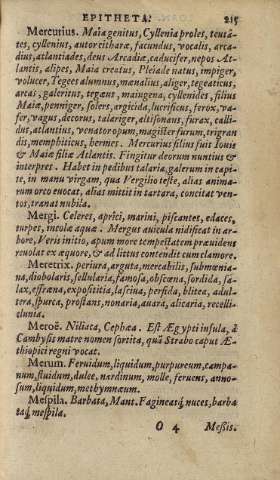 EPITHETA. 215
Mercurius. Maia genitus, Cyllenia proles, teutá-
tes, cyllenius, autor citharæ, facundus, vocalis, arca-
dius, atlantiades, deus Arcadiæ, caducifer, nepos At-
lantis, alipes, Maia creatus, Pleiade natus, impiger,
volucer, Tegees alumnus, mænalius, aliger, tegeaticus,
arcas, galeritus, tegæus, maiugena, cyllenides, filius
Maiæ, penniger, solers, argicida, lucrificus, ferox, va-
fer, vagus, decorus, talariger, altisonans, furax, calli-
dus, atlantius, venator opum, magister furum, trigran
dis, memphiticus, hermes. Mercurius filius fuit Iouis
& Maiæ filiæ Atlantis. Fingitur deorum nuntius &
interpres. Habet in pedibus talaria, galerum in capi-
te, in manu virgam, qua Vergilio teste, alias anima-
rum orco euocat, alias mittit in tartara, concitat ven-
tos, tranat nubila.
Mergi. Celeres, aprici, marini, piscantes, edaces,
turpes, incolæ aquæ. Mergus auicula nidificat in ar-
bore, Veris initio, apum more tempestatem præuidens
reuolat ex æquore, & ad littus contendit cum clamore.
Meretrix. periura, arguta, mercabilis, submœnia-
na, diobolaris, sellularia, famosa, obscœna, sordida, sa-
lax, effræna, exposititia, lasciua, perfida, blitea, adul-
tera, spurca, prostans, nonaria, auara, alicaria, recelli-
clunia.
Meroë. Niliata, Cephæa. Est Ægypti insula, à
Cambysis matre nomen sortita, quā Strabo caput Æ-
thiopici regni vocat.
Merum. Feruidum, liquidum, purpureum, campa-
num, fluidum, dulce, nardinum, molle, feruens, anno-
sum, liquidum, methymnæum.
Mespila. Barbata, Mant. Fagineatq; nuces, barba
taq; mespila.
O 4 Messis.